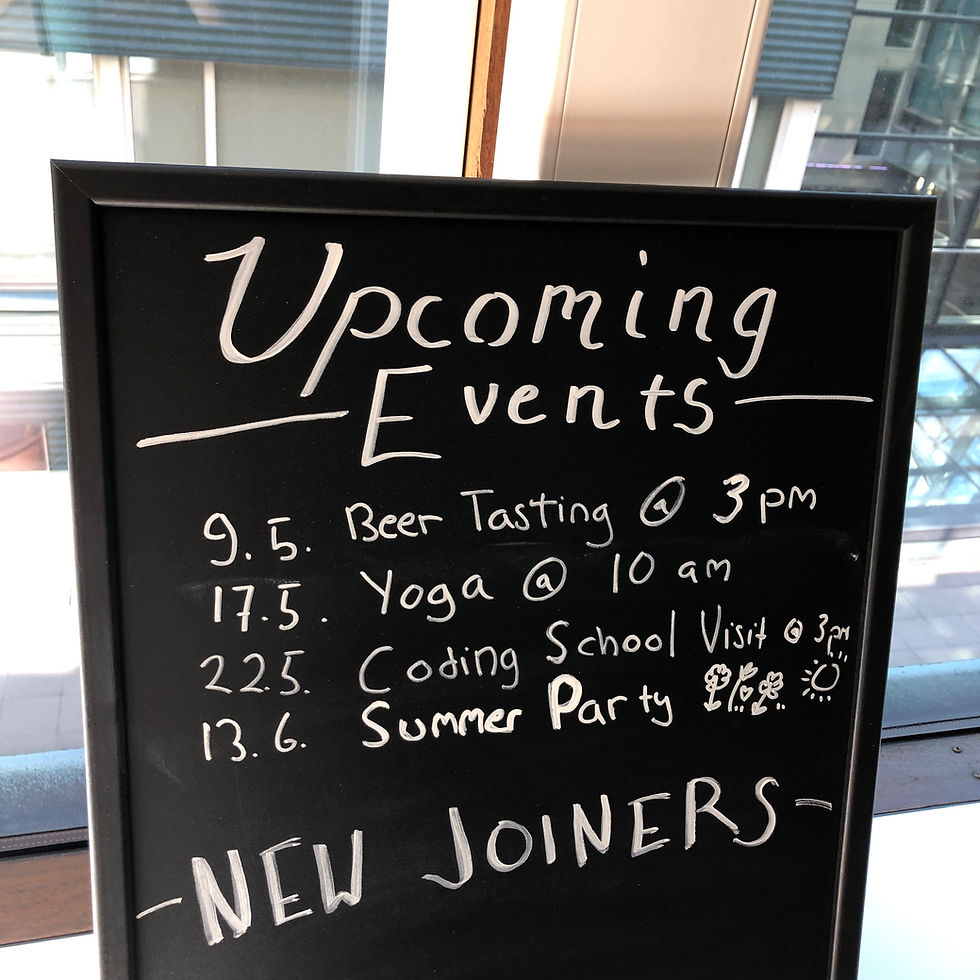 Upcoming
Events
9.5. Beer Tasting @ 3pm
17.5. Yoga @ 10 am
22.5. Coding School Visit @ 3pm
13.6. Summer Party
NEW JOINERS